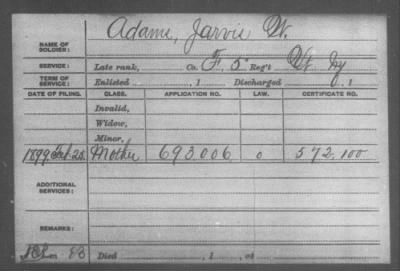 NAME OF SOLDIER: Adams, Jarvis W.
SERVICE: Late rank, Co. F. 5" Reg't Vt. Inf
TERM OF SERVICE: Enlisted , 1 Discharged , 1
DATE OF FILING. CLASS. APPLICATION NO. LAW. CERTIFICATE NO.
Invalid,
Widow,
Minor,
1899 Feb. 23. Mother 693.006 0 572.100
ADDITIONAL SERVICES:
REMARKS:
Died , 1 , at